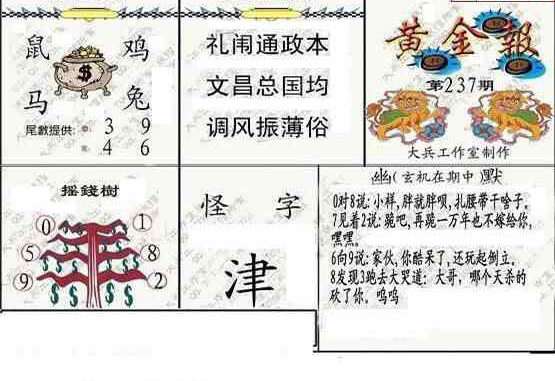 鼠 鸡
$
马 兔
尾數提供: 3 9
4 6
礼闹通政本
文昌总国均
调风振薄俗
黄金報
第237期
大兵工作室制作
摇錢樹
0 1
5 8
9 2
怪 字
津
幽(玄机在期中 默
0对8说:小样,胖就胖呗,扎腰带干啥子.
7见着2说:跪吧,再跪一万年也不嫁给你,
嘿嘿。
6向9说:家伙,你酷呆了,还玩起倒立.
8发现3跑去大哭道：大哥，哪个天杀的
砍了你。呜呜